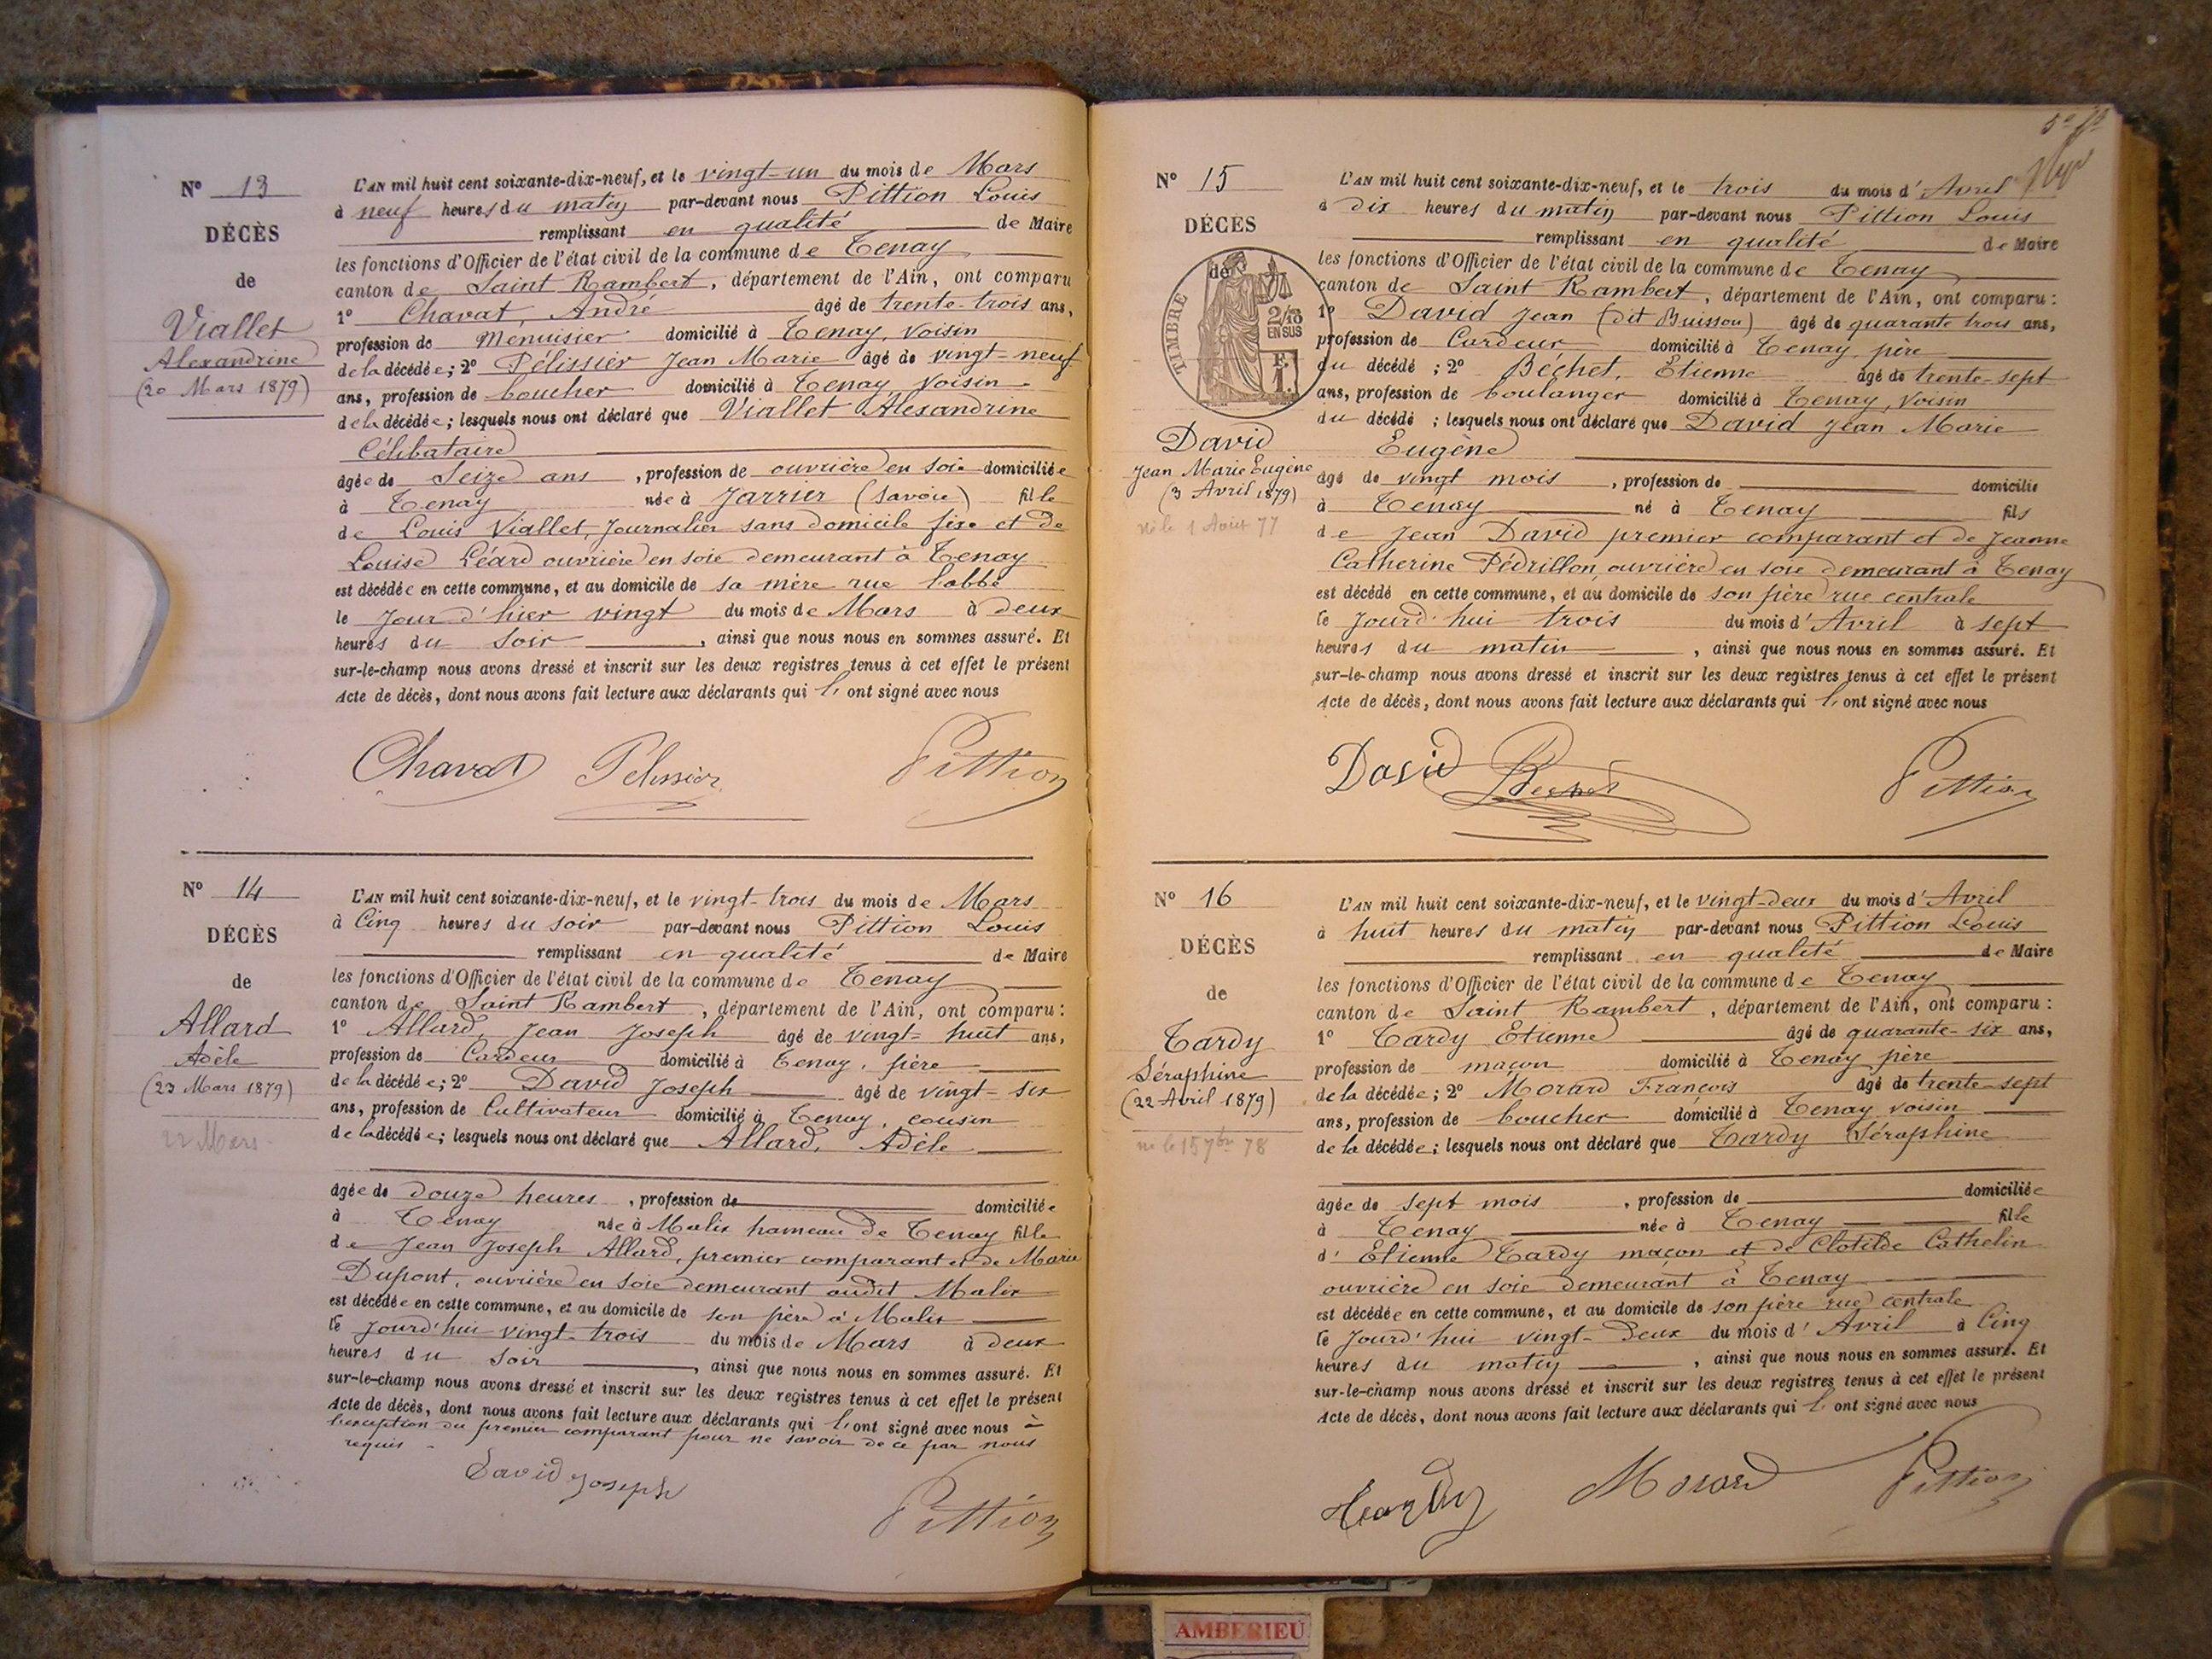 Nº 13
DÉCÈS
de
Viallet
Alexandrine
(20 Mars 1879)
L'AN mil huit cent soixante-dix-neuf, et le vingt-un du mois de Mars
à neuf heures du matin par-devant nous Pittion Louis
remplissant en qualité de Maire
les fonctions d'Officier de l'état civil de la commune de Tenay
canton de Saint Rambert, département de l'Ain, ont comparu
1º Chavat, André âgé de trente-trois ans,
profession de Menuisier domicilié à Tenay, voisin
de la décédée; 2º Pélissier Jean Marie âgé de vingt-neuf
ans, profession de boucher domicilié à Tenay voisin
de la décédée; lesquels nous ont déclaré que Viallet Alexandrine
Célibataire
âgée de Seize ans, profession de ouvrière en soie domiciliée
à Tenay née à Jarrier (Savoie) fille
de Louis Viallet, Journalier sans domicile fixe et de
Louise Léard ouvrière en soie demeurant à Tenay
est décédée en cette commune, et au domicile de sa mère rue l'abbé
le Jour d'hier vingt du mois de Mars à deux
heures du soir, ainsi que nous nous en sommes assuré. Et
sur-le-champ nous avons dressé et inscrit sur les deux registres tenus à cet effet le présent
Acte de décès, dont nous avons fait lecture aux déclarants qui l'ont signé avec nous
Chavat Pelissier Pittion
Nº 14
DÉCÈS
de
Allard
Adèle
(23 Mars 1879)
22 Mars
L'AN mil huit cent soixante-dix-neuf, et le vingt-trois du mois de Mars
à Cinq heures du soir par-devant nous Pittion Louis
remplissant en qualité de Maire
les fonctions d'Officier de l'état civil de la commune de Tenay
canton de Saint Rambert, département de l'Ain, ont comparu :
1º Allard, Jean Joseph âgé de vingt-huit ans,
profession de Cardeur domicilié à Tenay, père
de la décédée; 2º David Joseph âgé de vingt-six
ans, profession de Cultivateur domicilié à Tenay, cousin
de la décédée; lesquels nous ont déclaré que Allard, Adèle
âgée de douze heures, profession de domiciliée
à Tenay née à Malix hameau de Tenay fille
de Jean Joseph Allard, premier comparant et de Marie
Dupont, ouvrière en soie demeurant audit Malix
est décédée en cette commune, et au domicile de son père à Malix
le Jourd'hui vingt-trois du mois de Mars à deux
heures du soir, ainsi que nous nous en sommes assuré. Et
sur-le-champ nous avons dressé et inscrit sur les deux registres tenus à cet effet le présent
Acte de décès, dont nous avons fait lecture aux déclarants qui l'ont signé avec nous à
l'exception du premier comparant pour ne savoir de ce par nous
requis
David Joseph Pittion
Nº 15
DÉCÈS
de
TIMBRE
2/10
EN SUS
F.
1.
David
Jean Marie Eugène
(3 Avril 1879)
né le 1 Août 77
L'AN mil huit cent soixante-dix-neuf, et le trois du mois d'Avril
à dix heures du matin par-devant nous Pittion Louis
remplissant en qualité de Maire
les fonctions d'Officier de l'état civil de la commune de Tenay
canton de Saint Rambert, département de l'Ain, ont comparu :
1º David Jean (dit Buisson) âgé de quarante trois ans,
profession de Cardeur domicilié à Tenay, père
du décédé; 2º Béchet, Etienne âgé de trente-sept
ans, profession de boulanger domicilié à Tenay, voisin
du décédé; lesquels nous ont déclaré que David Jean Marie
Eugène
âgé de vingt mois, profession de domicilié
à Tenay né à Tenay fils
de Jean David premier comparant et de Jeanne
Catherine Pédrillon, ouvrière en soie demeurant à Tenay
est décédé en cette commune, et au domicile de son père rue centrale
le Jourd'hui trois du mois d'Avril à sept
heures du matin, ainsi que nous nous en sommes assuré. Et
sur-le-champ nous avons dressé et inscrit sur les deux registres tenus à cet effet le présent
Acte de décès, dont nous avons fait lecture aux déclarants qui l'ont signé avec nous
David Bechet Pittion
Nº 16
DÉCÈS
de
Tardy
Séraphine
(22 Avril 1879)
né le 15 7bre 78
L'AN mil huit cent soixante-dix-neuf, et le vingt-deux du mois d'Avril
à huit heures du matin par-devant nous Pittion Louis
remplissant en qualité de Maire
les fonctions d'Officier de l'état civil de la commune de Tenay
canton de Saint Rambert, département de l'Ain, ont comparu :
1º Tardy Etienne âgé de quarante-six ans,
profession de maçon domicilié à Tenay père
de la décédée; 2º Morard François âgé de trente-sept
ans, profession de boucher domicilié à Tenay voisin
de la décédée; lesquels nous ont déclaré que Tardy Séraphine
âgée de sept mois, profession de domiciliée
à Tenay née à Tenay fille
d'Etienne Tardy maçon et de Clotilde Cathelin
ouvrière en soie demeurant à Tenay
est décédée en cette commune, et au domicile de son père rue centrale
le Jourd'hui vingt-deux du mois d'Avril à Cinq
heures du matin, ainsi que nous nous en sommes assuré. Et
sur-le-champ nous avons dressé et inscrit sur les deux registres tenus à cet effet le présent
Acte de décès, dont nous avons fait lecture aux déclarants qui l'ont signé avec nous
Tardy Morard Pittion
AMBERIEU